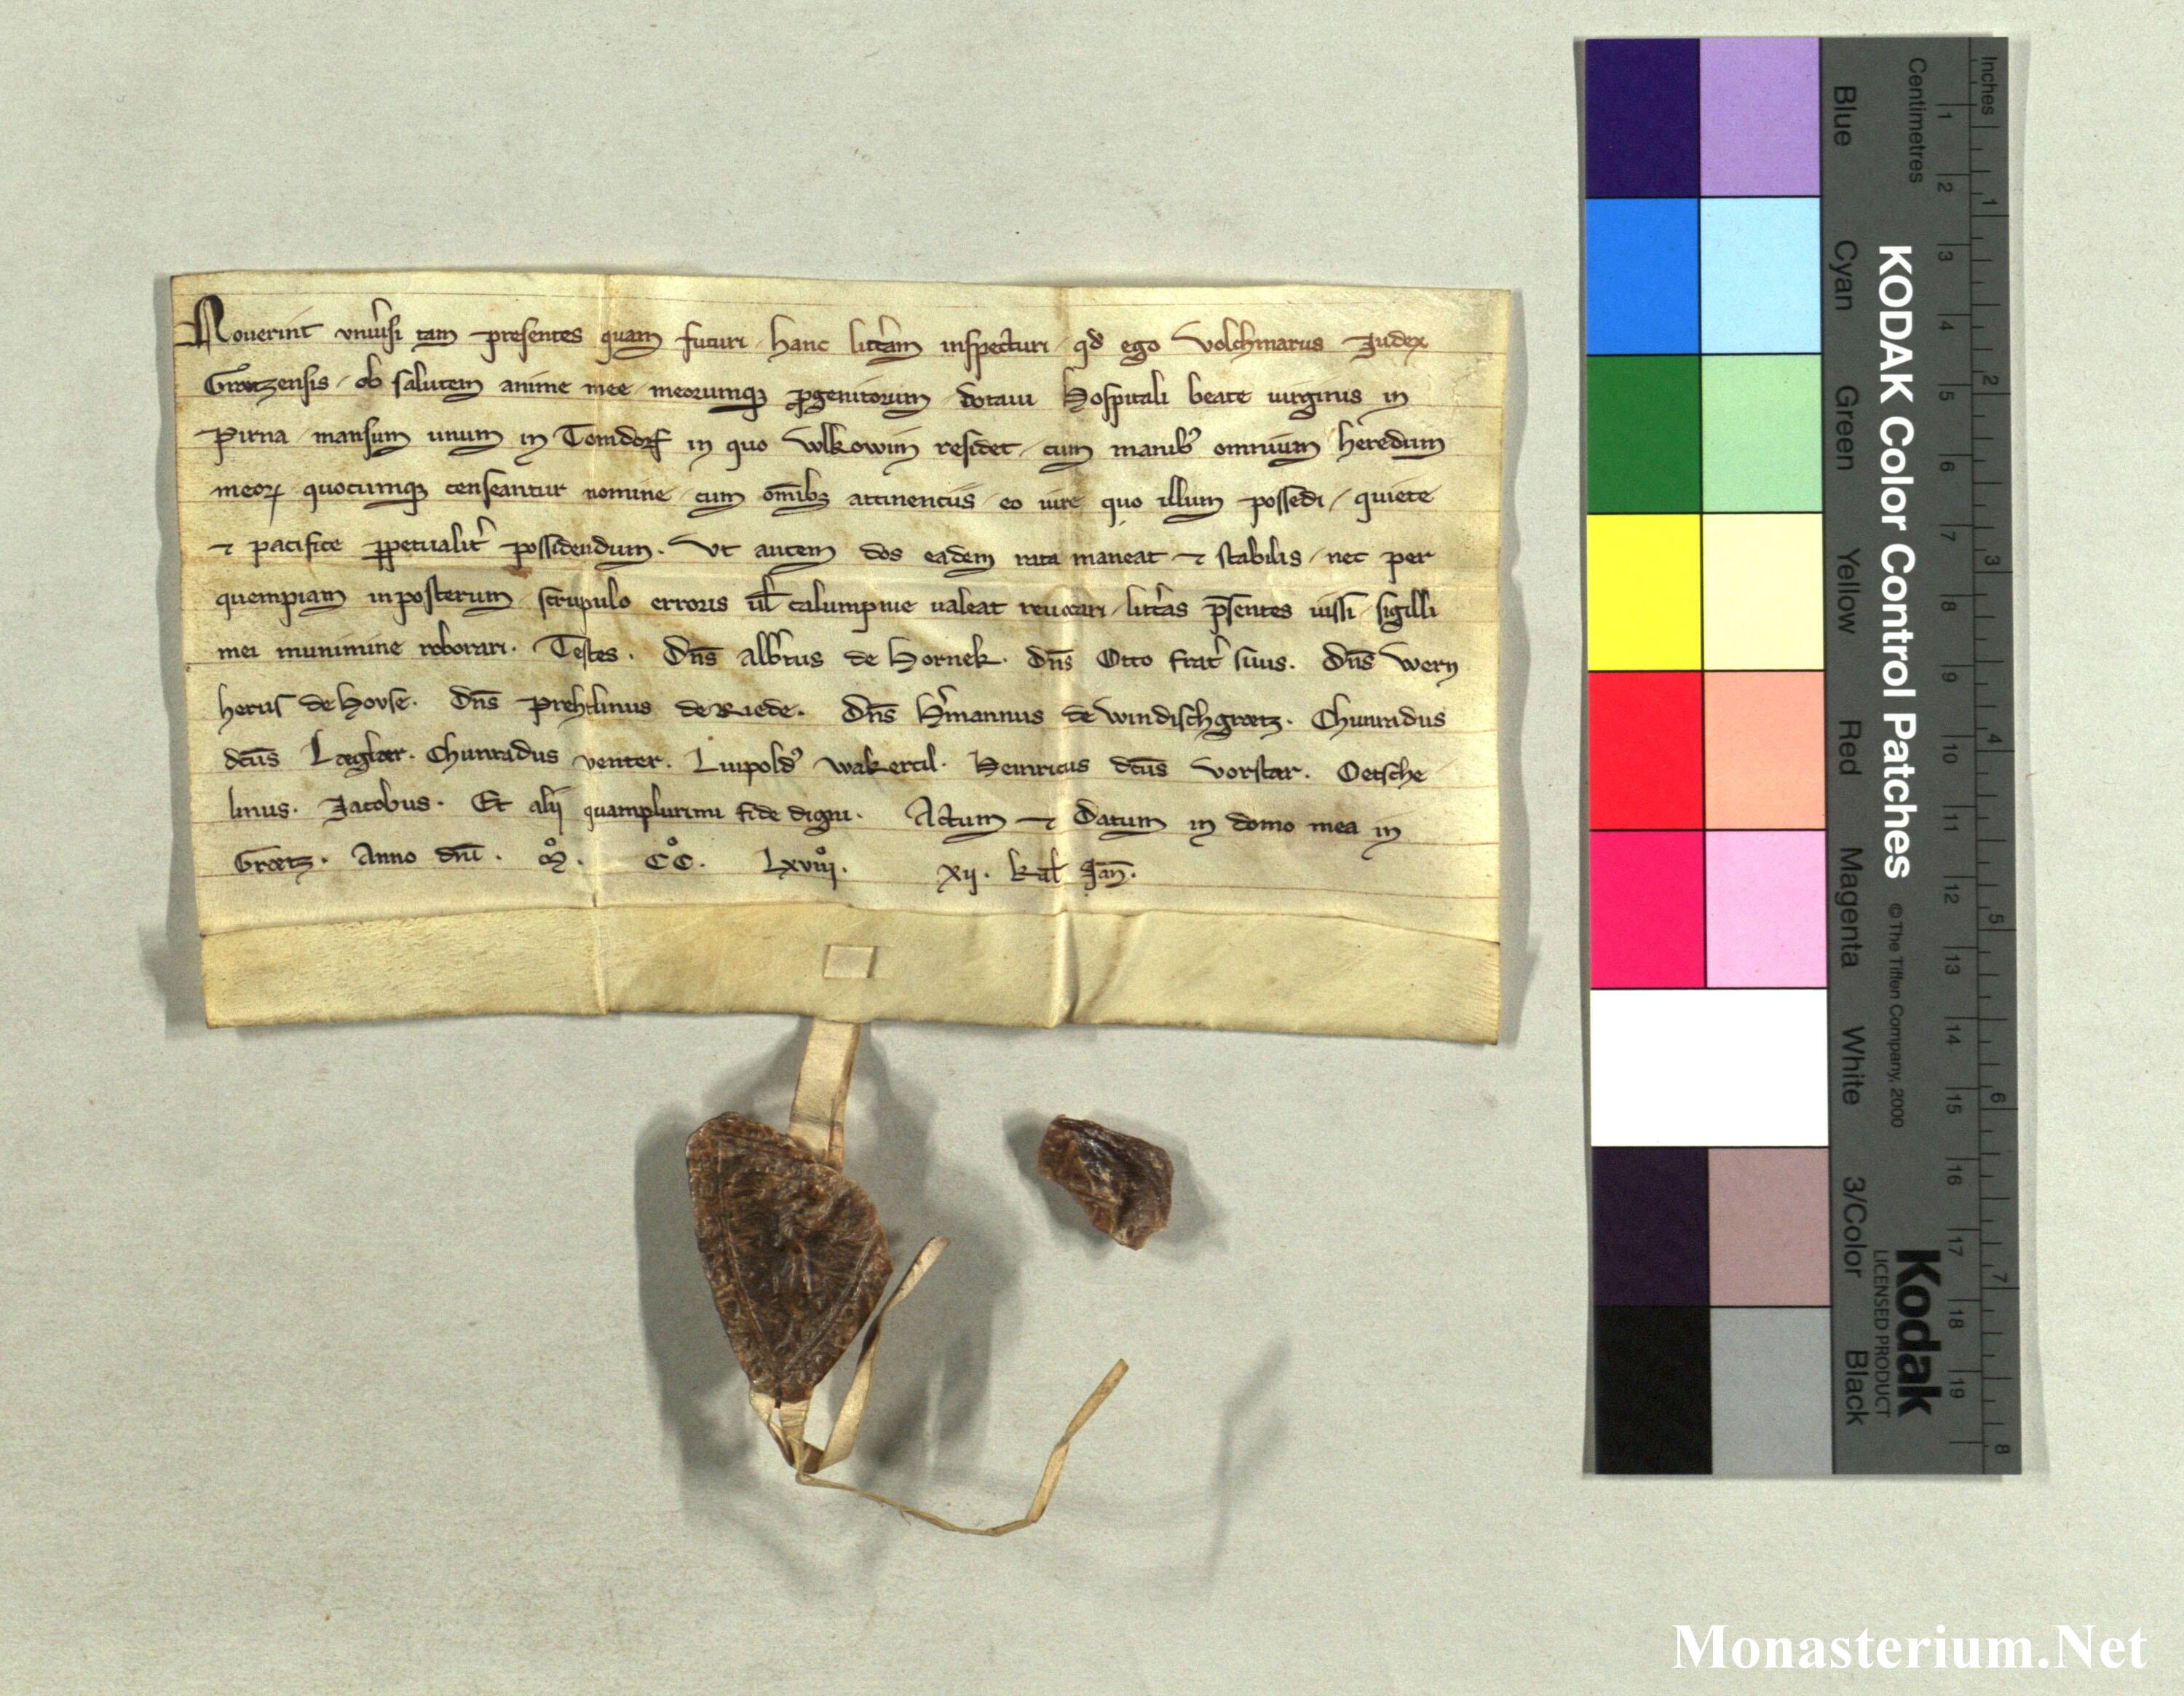 Nouerint vniu'si tam presentes quam futuri hanc litt'am inspecturi qd ego Volchmarus Judex
Graetzensis ob salutem anime mee meorumq; progenitorum dotaui Hospitali beate uirginis in
Pirna mansum unum in Tomdorf in quo Wlkowin residet cum manib' omnium heredum
meor. quocumq; censeantur nomine cum om̅ib; attinentiis eo iure quo illum possedi / quiete
⁊ pacifice ꝑpetualit' possidendum. Vt autem dos eadem rata maneat ⁊ stabilis / nec per
quempiam inposterum scrupulo erroris ul' calumpnie ualeat reuocari litt'as p̅sentes iussi sigilli
mei munimine roborari. Testes. Dn̅s Alb'tus de Hornek. Dn̅s Otto frat' suus. Dn̅s Wern
herus de Hovse. Dn̅s Prehtlinus de Riede. Dn̅s H'mannus de Windischgraetz. Chunradus
dc̅us Laeglaer. Chunradus venter. Liupold' Wakerzil. Heinricus dc̅us Vorstaer. Oetsche
linus. Jacobus. Et alij quamplurimi fide digni. Actum ⁊ Datum in domo mea in
Graetz. Anno dn̅i. M̊. CC̊. Lxviij̊. Xij. kal' Jan̅.
KODAK Color Control Patches
© The Tiffen Company, 2000
Kodak
LICENSED PRODUCT
Inches 1 2 3 4 5 6 7 8
Centimetres 1 2 3 4 5 6 7 8 9 10 11 12 13 14 15 16 17 18 19
Blue Cyan Green Yellow Red Magenta White 3/Color Black
Monasterium.Net